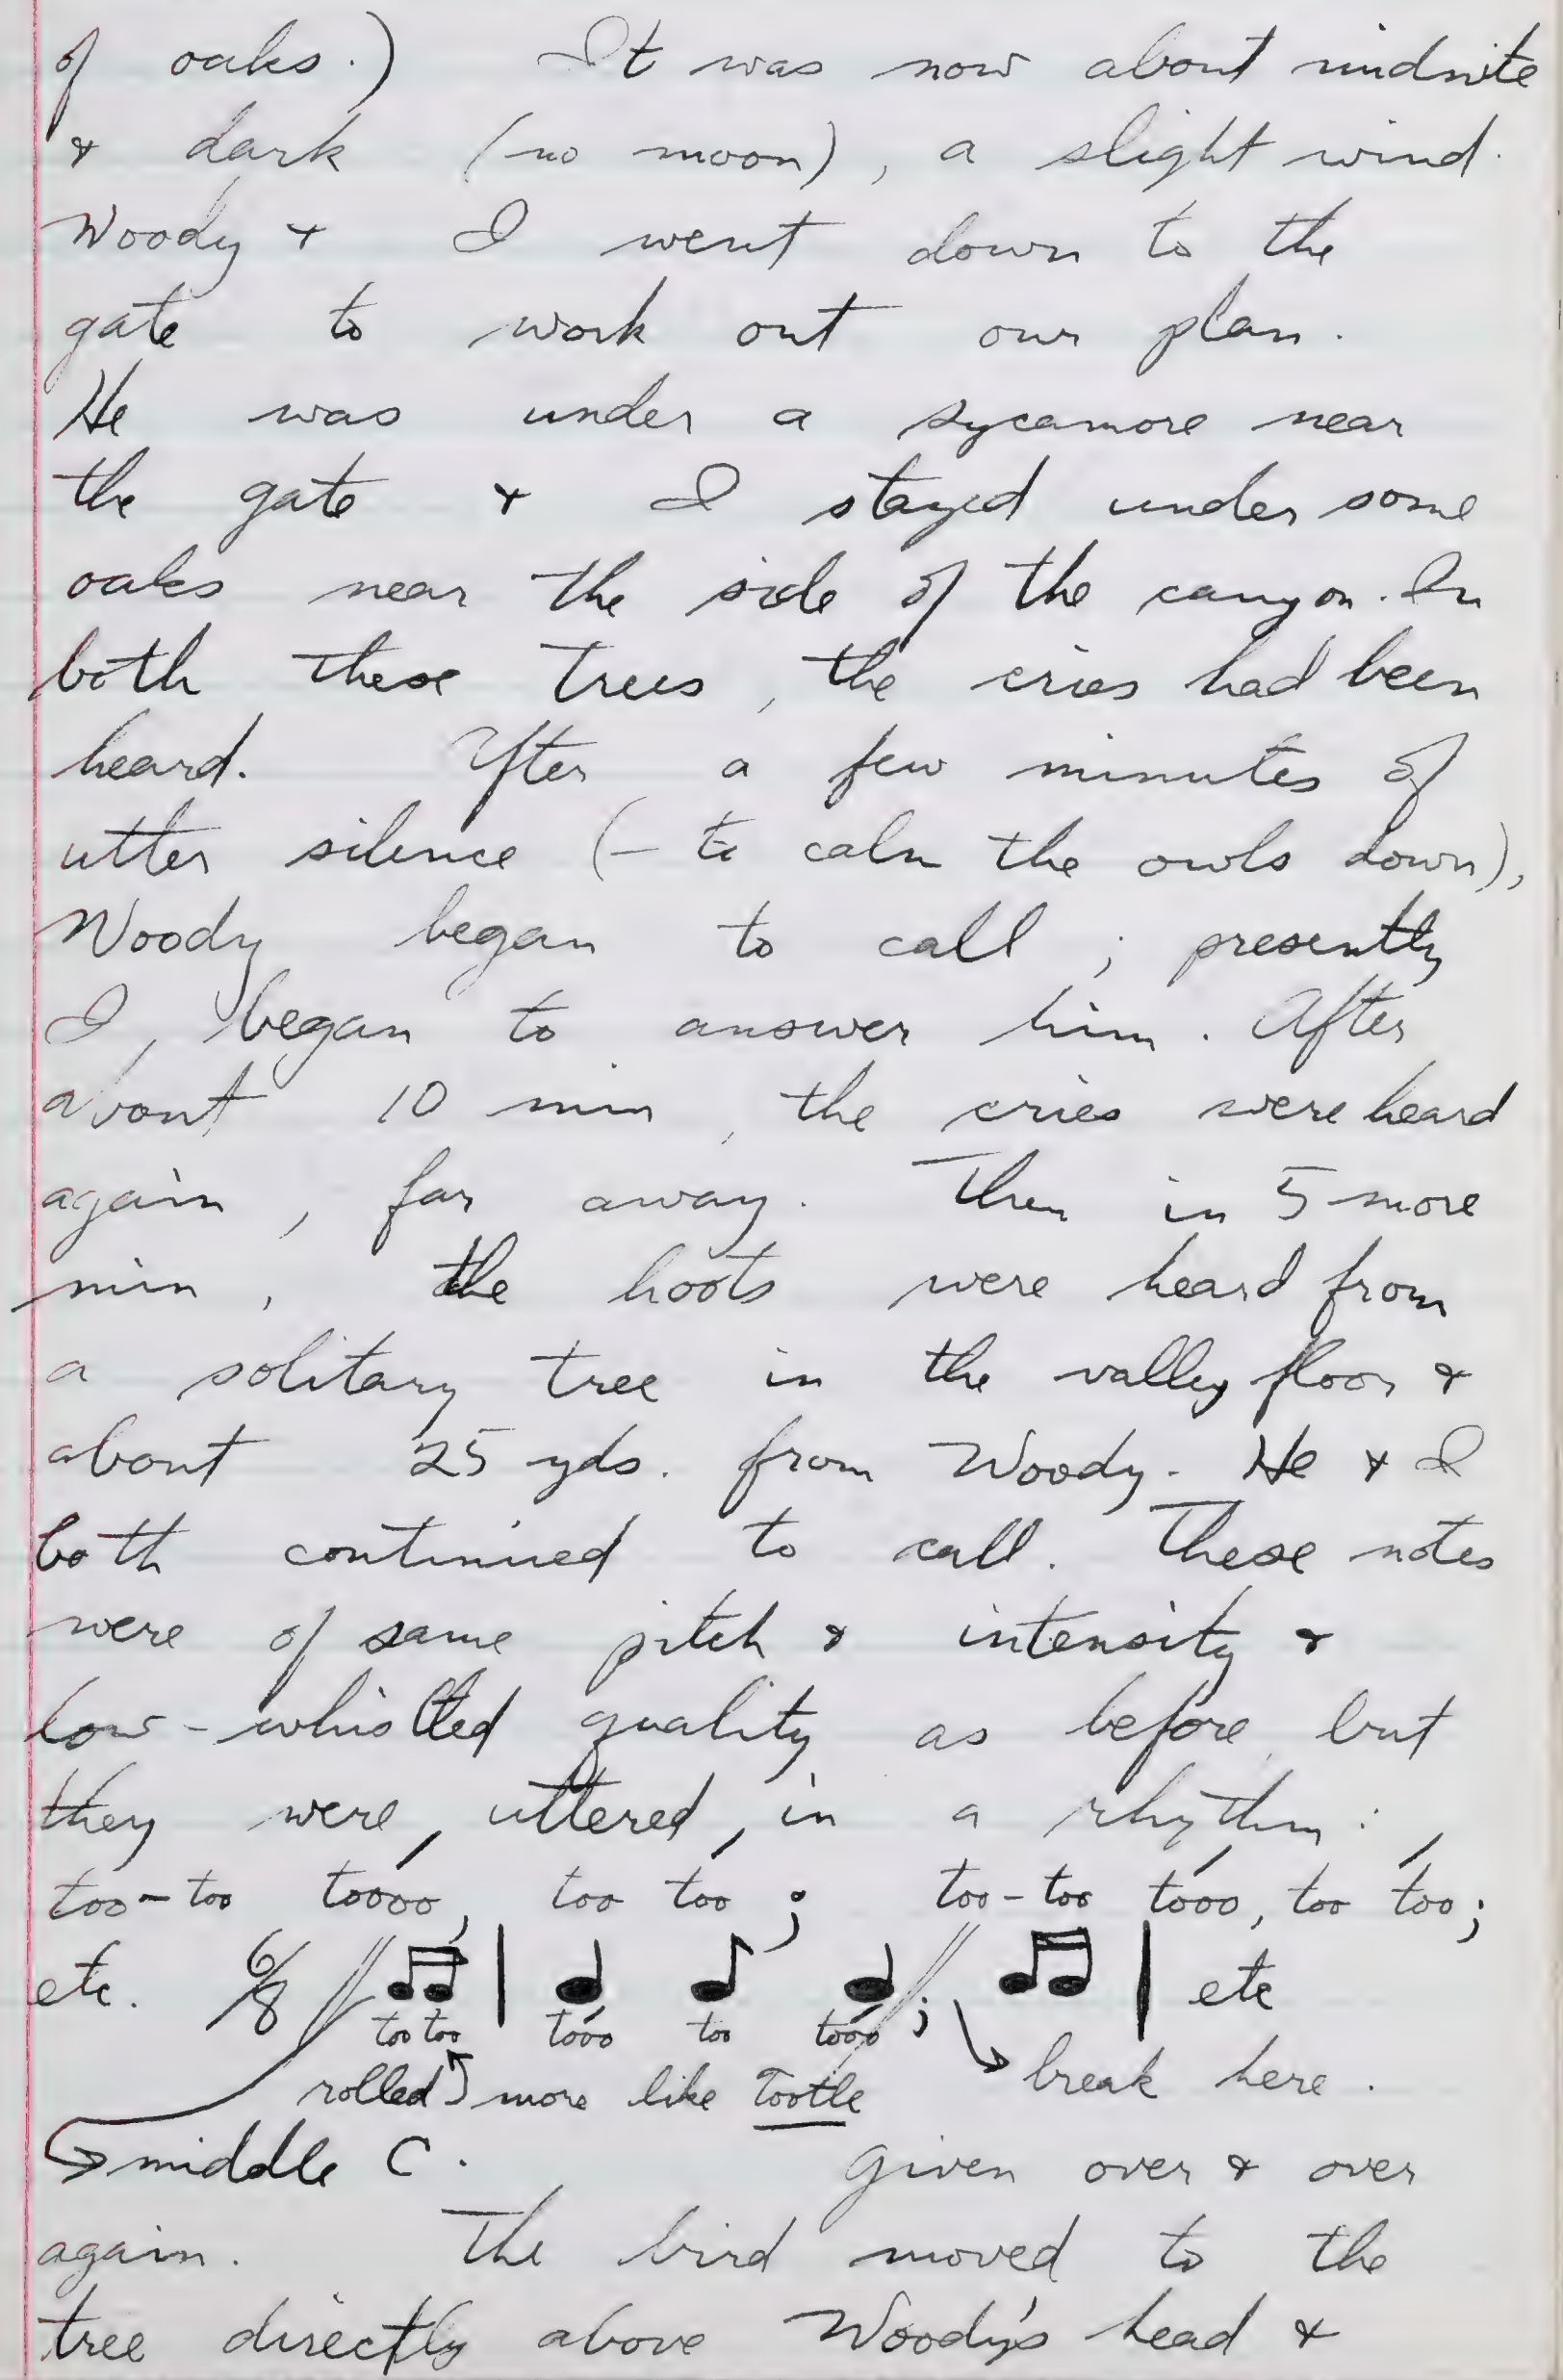 of oaks.) It was now about midnite
& dark (no moon), a slight wind.
Woody & I went down to the
gate to work out our plan.
He was under a sycamore near
the gate & I stayed under some
oaks near the side of the canyon. In
both these trees, the cries had been
heard. After a few minutes of
utter silence (– to calm the owls down),
Woody began to call ; presently
I, began to answer him. After
about 10 min, the cries were heard
again, far away. Then in 5 more
min, the hoots were heard from
a solitary tree in the valley floor &
about 25 yds. from Woody. He & I
both continued to call. These notes
were of same pitch & intensity &
low-whistled quality as before, but
they were, uttered, in a rhythm:
too-too toooo, too too ; too-too tóoo, too tóo;
etc. 6/8 etc
too too tóoo too tóoo ;
rolled more like tootle break here.
middle C. given over & over
again. The bird moved to the
tree directly above Woody's head &